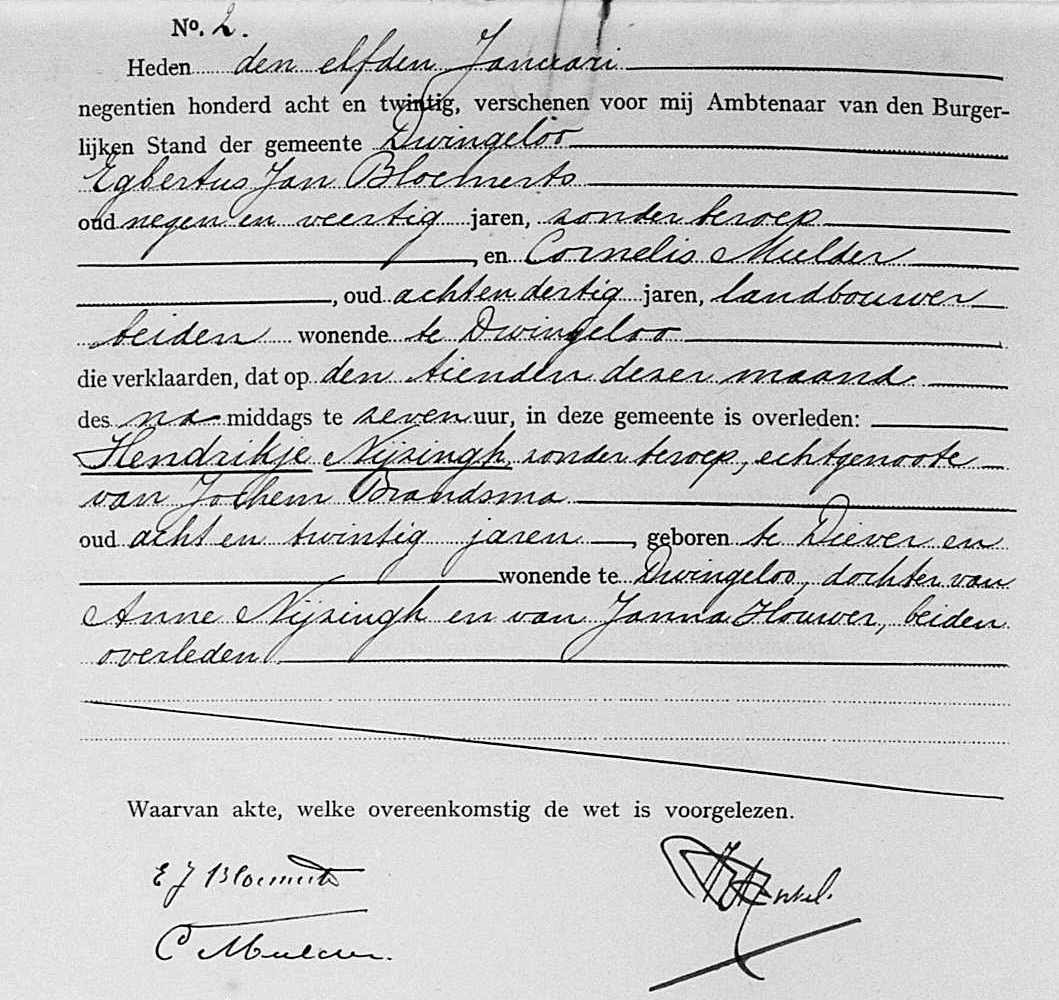 No. 2.
Heden den elfden Januari
negentien honderd acht en twintig, verschenen voor mij Ambtenaar van den Burger-
lijken Stand der gemeente Dwingeloo
Egbertus Jan Bloemerts
oud negen en veertig jaren, zonder beroep
, en Cornelis Mulder
, oud acht en dertig jaren, landbouwer
beiden wonende te Dwingeloo
die verklaarden, dat op den tienden dezer maand
des na middags te zeven uur, in deze gemeente is overleden:
Hendrikje Nijsingh, zonder beroep, echtgenoote
van Jochem Brandsma
oud acht en twintig jaren, geboren te Diever en
wonende te Dwingeloo, dochter van
Anne Nijsingh en van Janna Houwer, beiden
overleden
Waarvan akte, welke overeenkomstig de wet is voorgelezen.
E J Bloemerts
C Mulder.